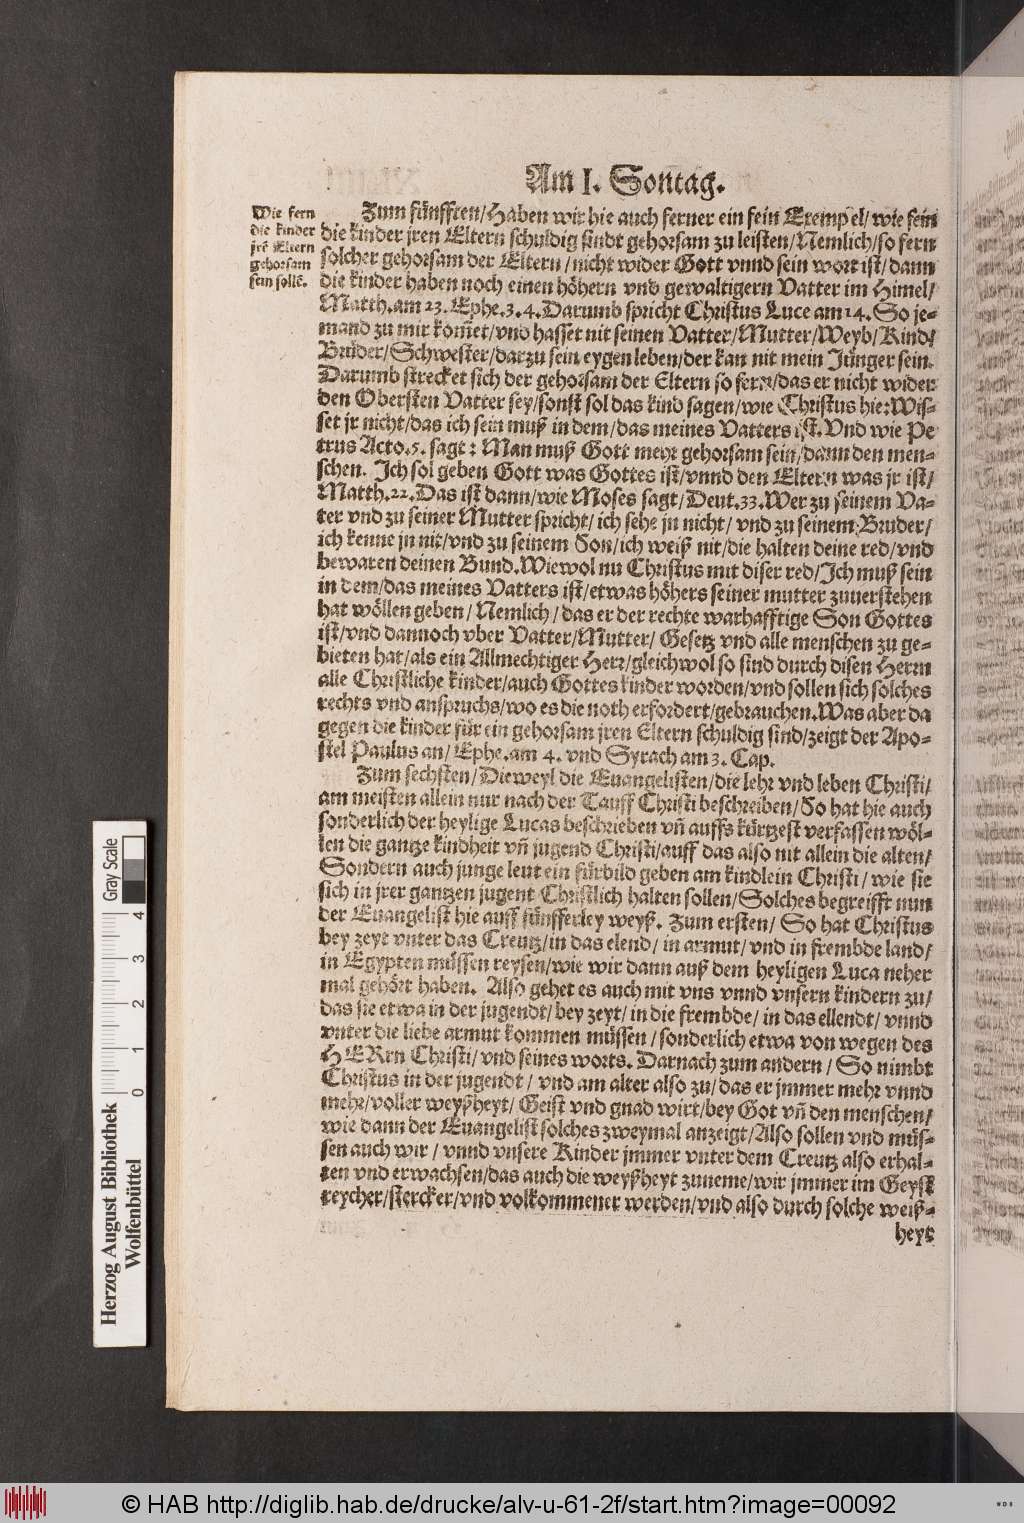 Am I. Sontag.
Wie fern
die kinder
jrẽ Eltern
gehorsam
sein sollẽ.
Zum fünfften/Haben wir hie auch ferner ein fein Exempel/ wie fein
die kinder jren Eltern schuldig sindt gehorsam zu leisten/Nemlich/so fern
solcher gehorsam der Eltern/nicht wider Gott vnnd sein wort ist/dann
die kinder haben noch einen höhern vnd gewaltigern Vatter im Himel/
Matth.am 23. Ephe.3.4. Darumb spricht Christus Luce am 14. So je-
mand zu mir kom̃et/vnd hasset nit seinen Vatter/Mutter/Weyb/Kind/
Brüder/Schwester/darzu sein eygen leben/der kan nit mein Jünger sein.
Darumb strecket sich der gehorsam der Eltern so fern/das er nicht wider
den Obersten Vatter sey/sonst sol das kind sagen/wie Christus hie:Wis-
set jr nicht/das ich sein muß in dem/das meines Vatters ist. Vnd wie Pe
trus Acto.5. sagt: Man muß Gott mehr gehorsam sein/dann den men-
schen. Ich sol geben Gott was Gottes ist/vnnd den Eltern was jr ist/
Matth.22. Das ist dann/wie Moses sagt/Deut.33. Wer zu seinem Va-
ter vnd zu seiner Mutter spricht/ ich sehe jn nicht/ vnd zu seinem Bruder/
ich kenne jn nit/vnd zu seinem Son/ich weiß nit/die halten deine red/vnd
bewaren deinen Bund. Wiewol nu Christus mit diser red/Ich muß sein
in dem/das meines Vatters ist/etwas höhers seiner mutter zuuerstehen
hat wöllen geben/ Nemlich/ das er der rechte warhafftige Son Gottes
ist/vnd dannoch vber Vatter/Mutter/ Gesetz vnd alle menschen zu ge-
bieten hat/als ein Allmechtiger Herr/gleichwol so sind durch disen Herrn
alle Christliche kinder/auch Gottes kinder worden/vnd sollen sich solches
rechts vnd anspruchs/wo es die noth erfordert/gebrauchen. Was aber da
gegen die kinder für ein gehorsam jren Eltern schuldig sind/zeigt der Apo-
stel Paulus an/ Ephe.am 4. vnd Syrach am 3. Cap.
Zum sechsten/Dieweyl die Euangelisten/die lehr vnd leben Christi/
am meisten allein nur nach der Tauff Christi beschreiben/So hat hie auch
sonderlich der heylige Lucas beschrieben vn̄ auffs kürtzest verfassen wöl-
len die gantze kindheit vn̄ jugend Christi/auff das also nit allein die alten/
Sondern auch junge leut ein fürbild geben am kindlein Christi/ wie sie
sich in jrer gantzen jugent Christlich halten sollen/Solches begreifft nun
der Euangelist hie auff fünfferley weyß. Zum ersten/ So hat Christus
bey zeyt vnter das Creutz/in das elend/ in armut/ vnd in frembde land/
in Egypten müssen reysen/wie wir dann auß dem heyligen Luca neher
mal gehört haben. Also gehet es auch mit vns vnnd vnsern kindern zu/
das sie etwa in der jugendt/ bey zeyt/ in die frembde/ in das ellendt/ vnnd
vnter die liebe armut kommen müssen/ sonderlich etwa von wegen des
HERrn Christi/ vnd seines worts. Darnach zum andern/ So nimbt
Christus in der jugendt/ vnd am alter also zu/ das er jmmer mehr vnnd
mehr/voller weyßheyt/ Geist vnd gnad wirt/bey Got vn̄ den menschen/
wie dann der Euangelist solches zweymal anzeigt/Also sollen vnd müs-
sen auch wir/ vnnd vnsere Kinder jmmer vnter dem Creutz also erhal-
ten vnd erwachsen/das auch die weyßheyt zuneme/wir jmmer im Geyst
reycher/stercker/vnd volkommener werden/vnd also durch solche weiß-
heyt
Gray Scale
0 1 2 3 4
Herzog August Bibliothek
Wolfenbüttel
© HAB http://diglib.hab.de/drucke/alv-u-61-2f/start.htm?image=00092